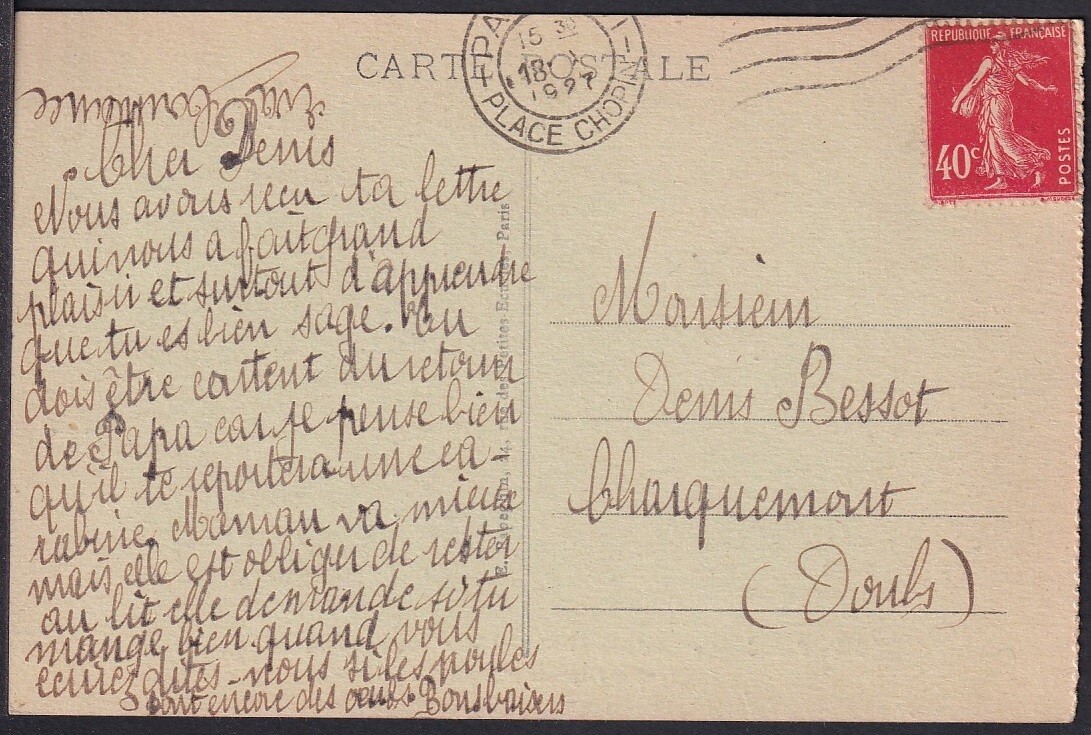 CARTE POSTALE
15 30
18
1927
PLACE CHOPIN
REPUBLIQUE FRANÇAISE
40c
POSTES
Cher Denis
Nous avons recu ta lettre
qui nous a fait grand
plaisir et surtout d'apprendre
que tu es bien sage. Tu
dois être content du retour
de Papa car je pense bien
qu'il te reportera une ca-
rabine. Maman va mieux
mais elle est obliger de rester
au lit elle demande si tu
mange bien quand vous
ecrirez dites-nous si les poules
font encore des oeufs. Bons baisers
Paris
Monsieur
Denis Bessot
Charquemont
(Doubs)